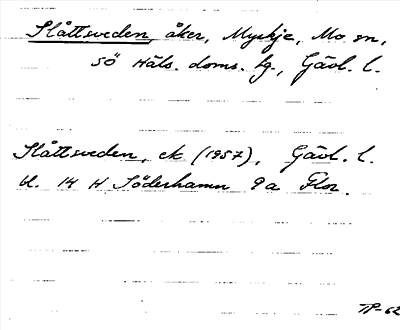 Slåttsveden, åker, Myskje, Mo sn,
SÖ Häls. doms. lg., Gävl. l.
Slåttsveden, ek (1957), Gävl. l.
bl. 14 H Söderhamn 9a Flor.
TP-62